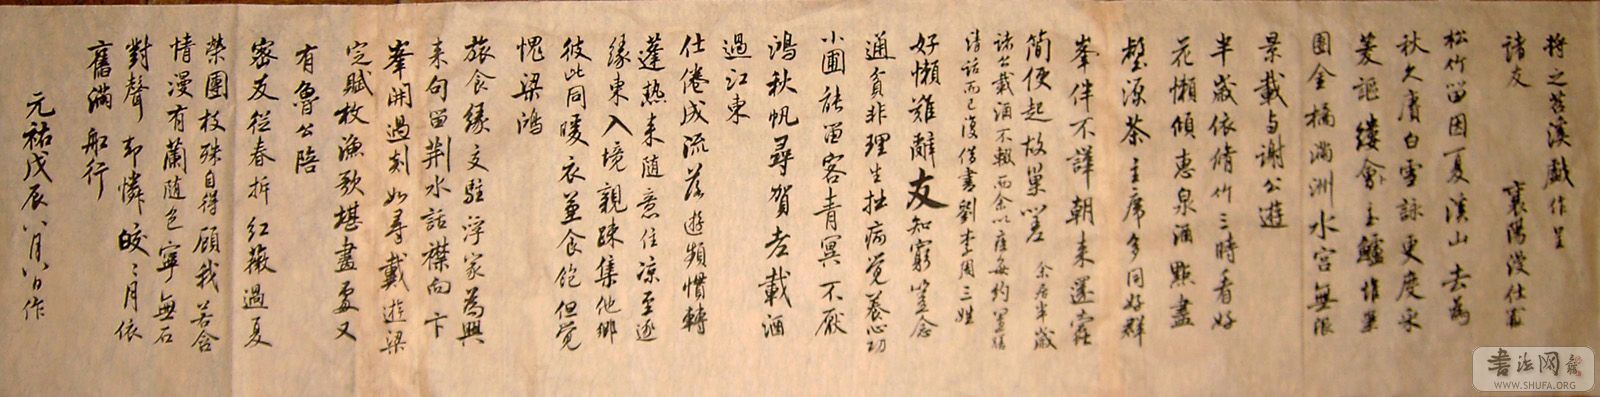 将之苕溪戲作呈
諸友 襄陽漫仕黻
松竹留因夏溪山去為
秋久賡白雪詠更度采
菱謳縷會玉鱸堆案
團金橘滿洲水宮無限
景載与謝公遊
半歲依脩竹三時看好
花懶傾惠泉酒點盡
壑源茶主席多同好群
峯伴不譁朝来還蠹
簡便起故巢嗟 余居半歲
諸公載酒不輟而余以疾每約置膳
清話而已復借書劉李周三姓
好懶難辭友知窮豈念
通貧非理生拙病覺養心功
小圃能留客青冥不厭
鴻秋帆尋賀老載酒
過江東
仕倦成流落遊頻慣轉
蓬熱来随意住凉至逐
緣東入境親疎集他鄉
彼此同暖衣兼食飽但覺
愧梁鴻
旅食緣交駐浮家為興
来句留荆水話襟向卞
峯開過剡如尋戴遊梁
定賦枚漁歌堪畫處又
有魯公陪
密友從春拆紅薇過夏
榮團枝殊自得顧我若含
情漫有蘭随色寧無石
對聲却憐皎〻月依
舊滿船行
元祐戊辰八月八日作
书法网
WWW.SHUFA.ORG